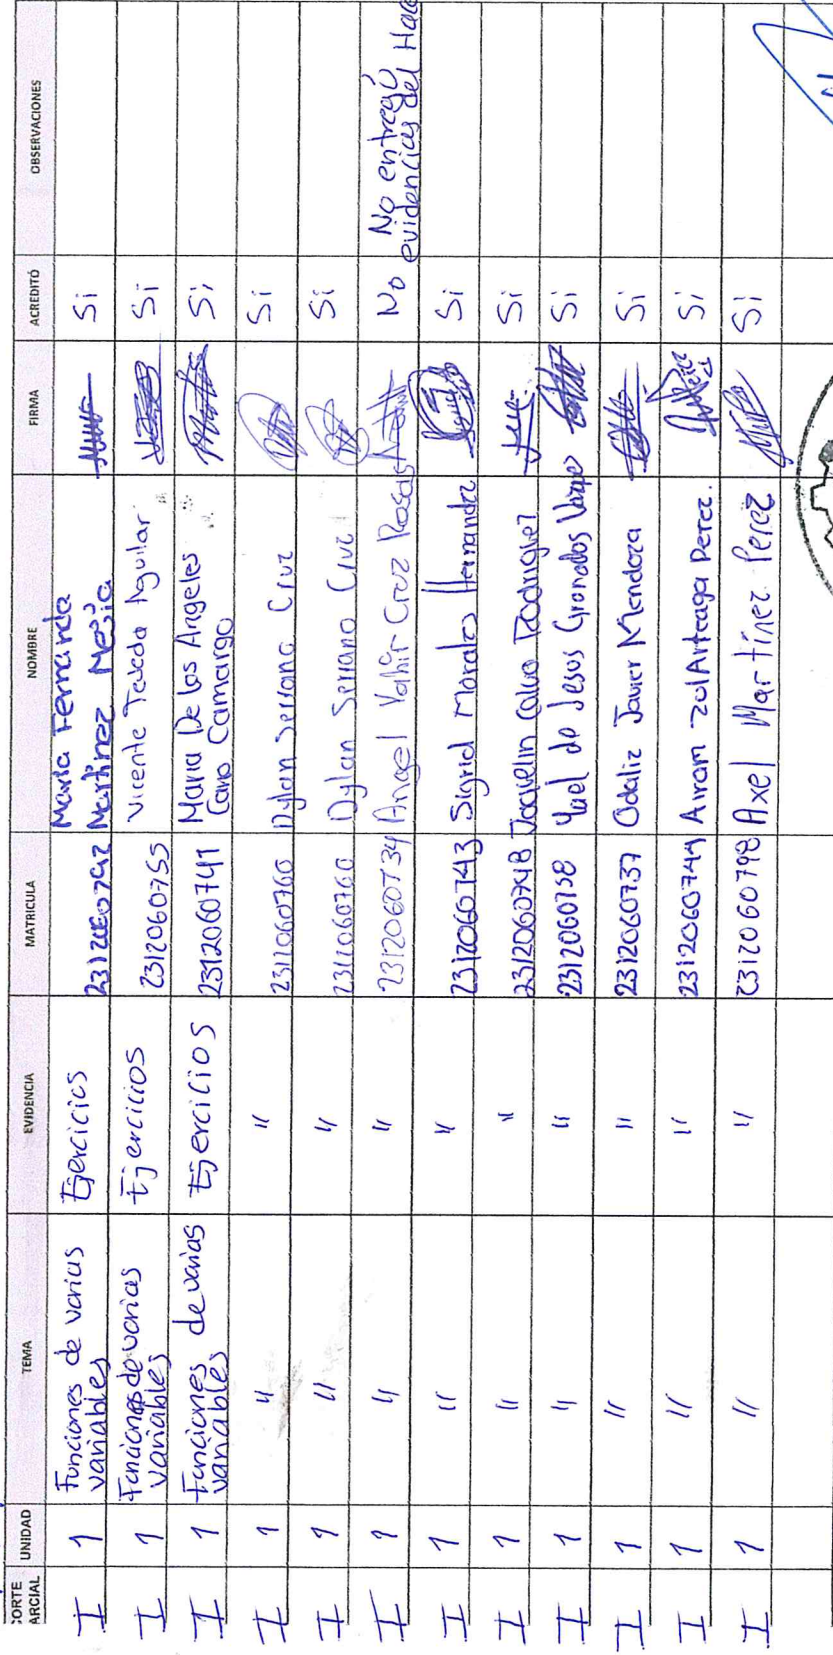 CORTE PARCIAL UNIDAD TEMA EVIDENCIA MATRICULA NOMBRE FIRMA ACREDITÓ OBSERVACIONES
I 1 Funciones de varias variables Ejercicios 2312060742 Maria Fernanda Martinez Mejia Si
I 1 Funciones de varias variables Ejercicios 2312060755 Vicente Tejeda Aguilar Si
I 1 Funciones de varias variables Ejercicios 2312060741 Maria De los Angeles Cano Camargo Si
I 1 " " 2311060760 Dylan Serrano Cruz Si
I 1 " " 2311060760 Dylan Serrano Cruz Si
I 1 " " 2312060734 Angel Yahir Cruz Rosas No No entregó evidencias del
I 1 " " 2312060743 Sigrid Morales Hernandez Si
I 1 " " 2312060748 Joquelin Calvo Rodriguez Si
I 1 " " 2312060758 Yael de Jesus Granados Vargas Si
I 1 " " 2312060737 Odaliz Javier Mendoza Si
I 1 " " 2312060744 Airam Zul Arteaga Perez. Si
I 1 " " 2312060798 Axel Martínez Perez Si